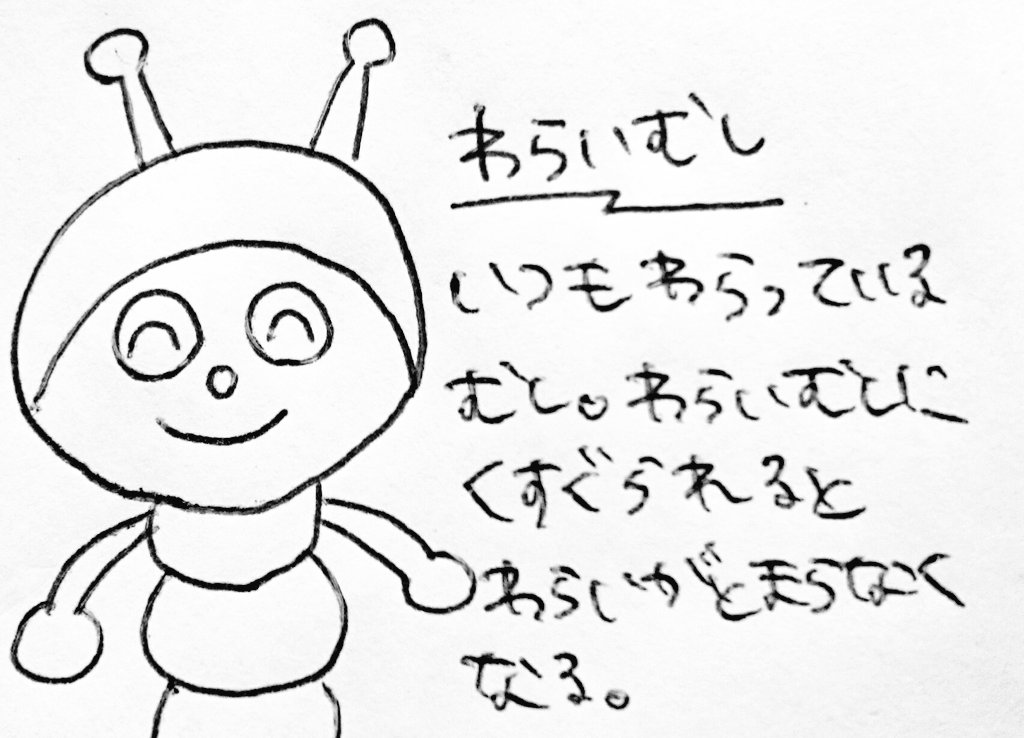 わらいむし
いつもわらっている
むし。わらいむしに
くすぐられると
わらいがとまらなく
なる。